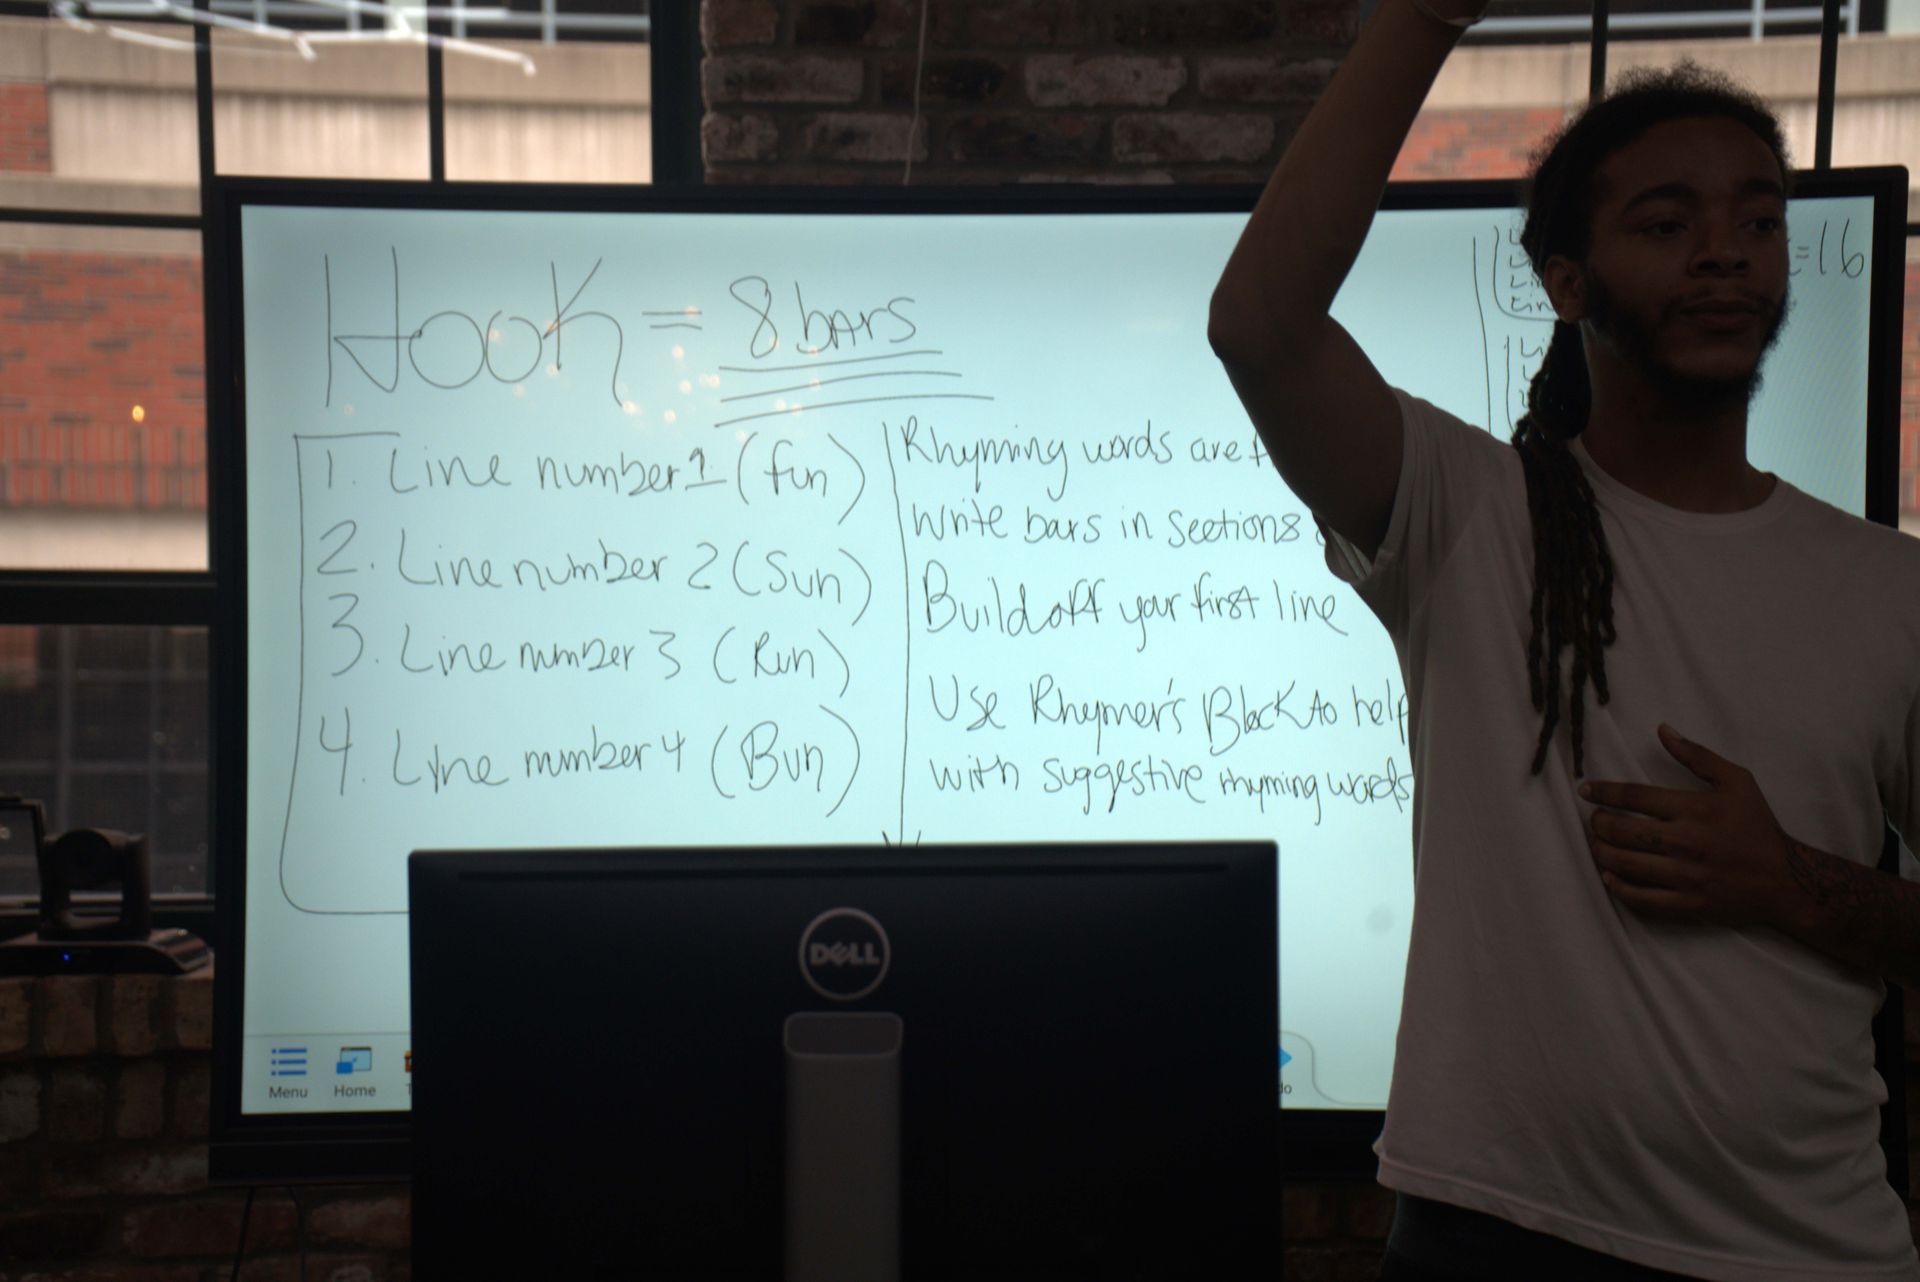 Hook = 8 bars
1. Line number 1 (fun)
2. Line number 2 (Sun)
3. Line number 3 (Run)
4. Line number 4 (Bun)
Rhyming words are
Write bars in sections
Build off your first line
Use Rhymer's Block to help
with suggestive rhyming words
=16
DELL
Menu
Home